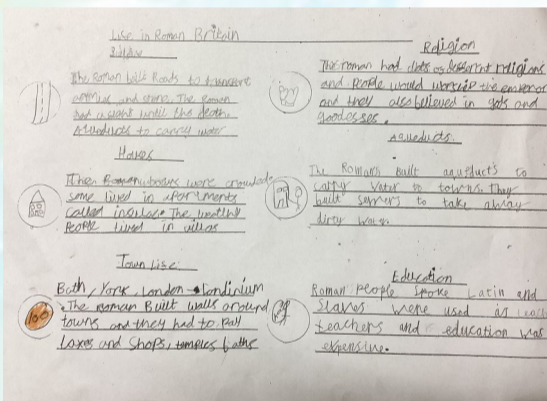 Life in Roman Britain
The Roman built Roads to transport
and stone. The Roman
had a until the death.
Aqueducts to carry water
Houses
The Roman houses were crowded
some lived in apartments
called insulae The wealthy
People lived in villas
Town Life
Bath, York, London → Londinium
The roman Built walls around
towns and they had to Pay
taxes and Shops, temples baths
Religion
The roman had lots of different religions
and People would worship the emperor
and they also believed in gods and
goodesses.
Aqueducts.
The Romans built aqueducts to
carry Water to towns. They
built sewers to take away
dirty water.
Education
Roman People Spoke Latin and
Slaves were used as
teachers and education was
expensive.